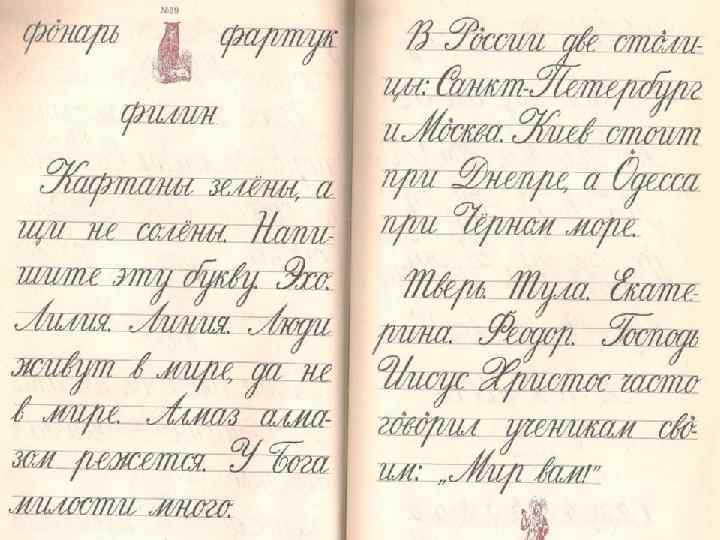 №29
фонарь фартук
филин
Кафтаны зелёны, а
щи не солёны. Напи-
шите эту букву. Эхо.
Лилия. Линия. Люди
живут в мире, да не
в мире. Алмаз алма-
зом режется. У Бога
милости много.
В России две столи-
цы: Санкт-Петербург
и Москва. Киев стоит
при Днепре, а Одесса
при Чёрном море.
Тверь. Тула. Екате-
рина. Феодор. Господь
Иисус Христос часто
говорил ученикам сво-
им: „Мир вам!"